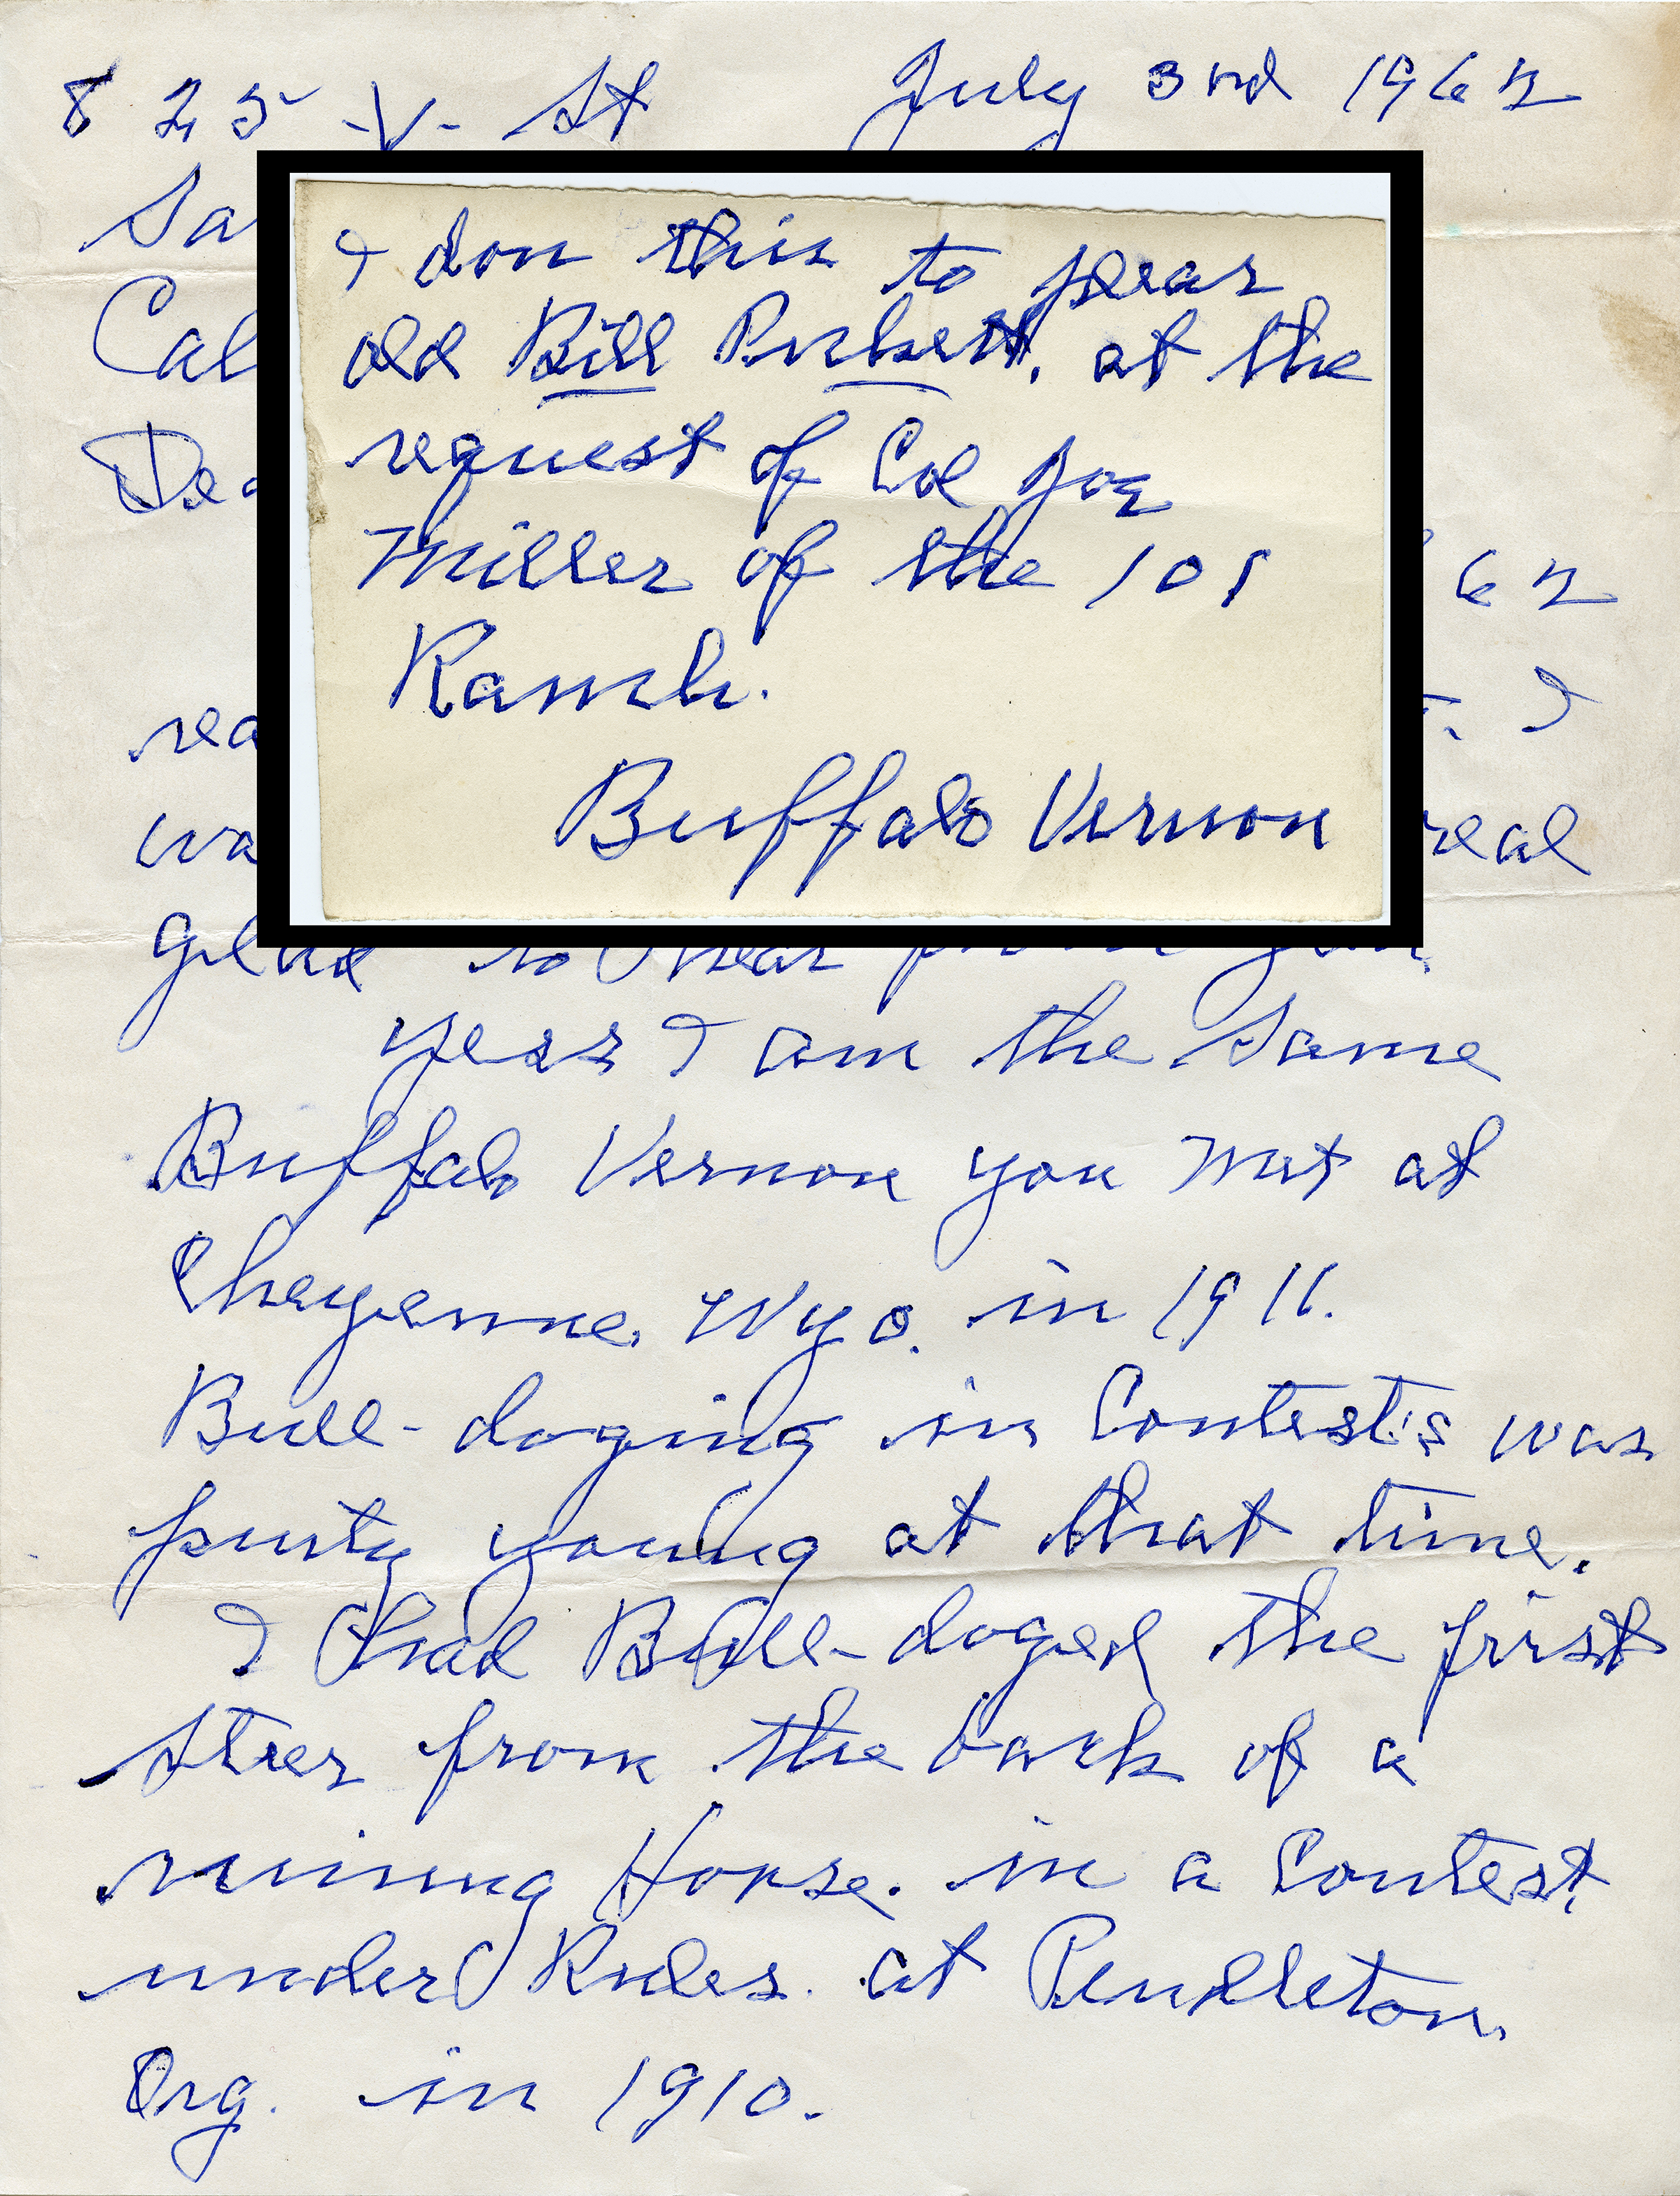 825 -V- St July 3rd 1962
Sa
Cal
Dea
62
rea I
wa real
glad to hear from you.
yess I am the Same
Buffalo Vernon you met at
Cheyenne. Wyo. in 1911.
Bull-doging in Contests was
purty young at that time.
I had Bull-doged the first
Steer from the back of a
runing Horse. in a Contest,
under Rules. at Pendleton.
Org. in 1910.
I don this to spear
old Bill Picket, at the
request of Col Joe
Miller of the 101
Ranch.
Buffalo Vernon